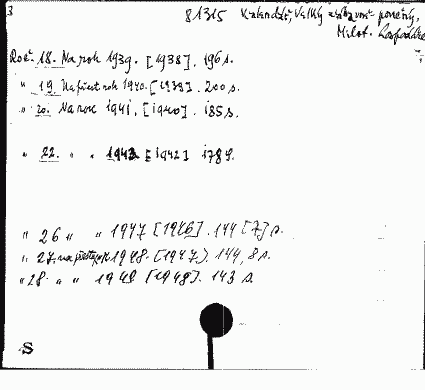 3
81315 Kalendář, Velký a zábavně-poučný,
Milot. hospodářs
Roč. 18. Na rok 1939. [1938]. 196 s.
" 19. Na přest. rok 1940. [1939]. 200 s.
" 20. Na rok 1941. [1940]. 185 s.
" 22. " " 1943 [1942] 178 s.
" 26 " " 1947 [1946]. 144 [7] s.
" 27. na přest. rok 1948. [1947]. 144, 8 s.
" 28. " " 1949 [1948]. 143 s.
S